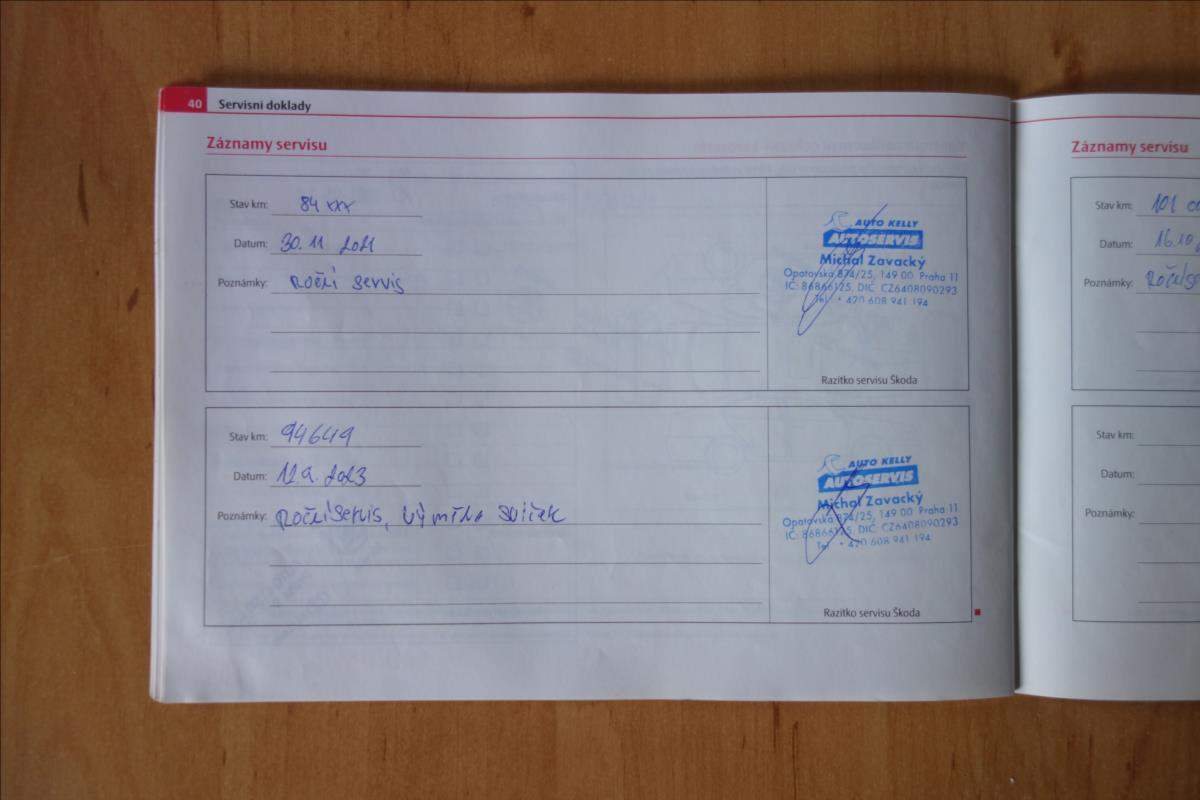 40 Servisní doklady
Záznamy servisu
Stav km: 84 xxx
Datum: 30.11 2021
Poznámky: Roční servis
AUTO KELLY
AUTOSERVIS
Michal Zavacký
Opatovská 874/25, 149 00 Praha 11
IČ: 86866125, DIČ: CZ6408090293
Tel.: + 420 608 941 194
Razítko servisu Škoda
Stav km: 94649
Datum: 12.9. 2023
Poznámky: Roční servis, výměna svíček
AUTO KELLY
AUTOSERVIS
Michal Zavacký
Opatovská 874/25, 149 00 Praha 11
IČ: 86866125, DIČ: CZ6408090293
Tel.: + 420 608 941 194
Razítko servisu Škoda
Záznamy servisu
Stav km: 101
Datum: 16.10
Poznámky:
Stav km:
Datum:
Poznámky: